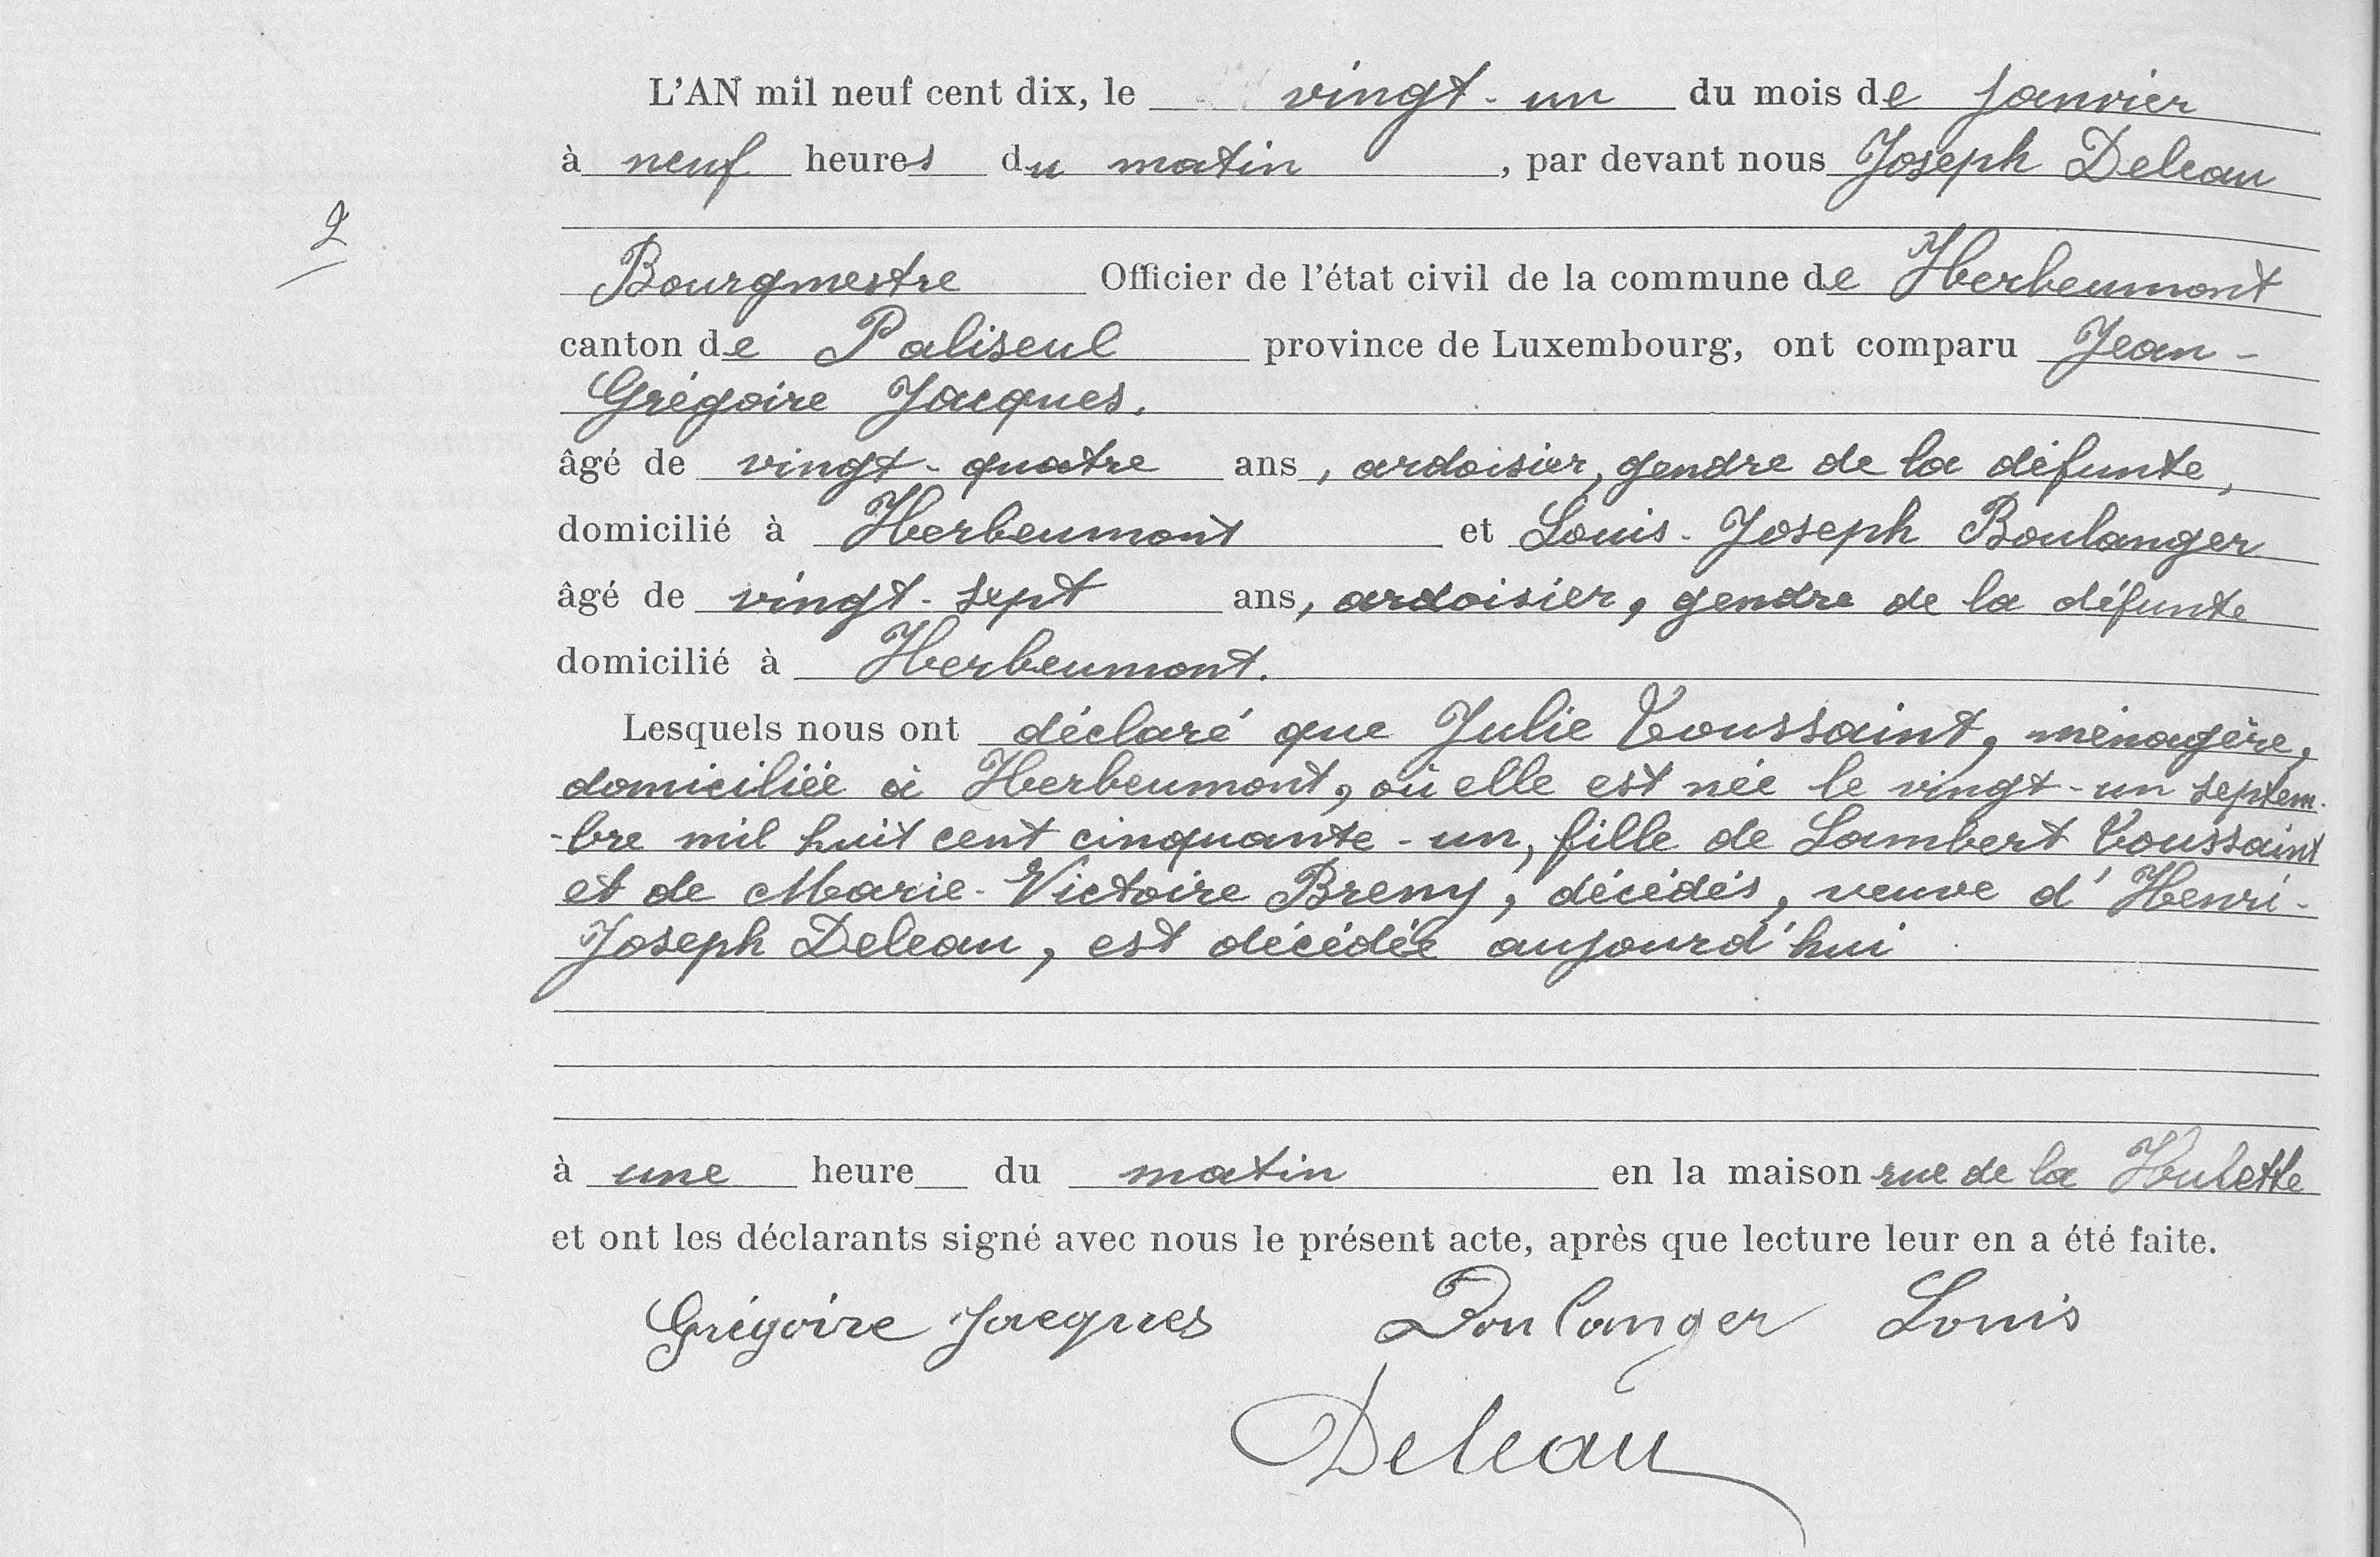 L'AN mil neuf cent dix, le vingt-un du mois de janvier
à neuf heures du matin, par devant nous Joseph Deleau
2
Bourgmestre Officier de l'état civil de la commune de Herbeumont
canton de Paliseul province de Luxembourg, ont comparu Jean-
Grégoire Jacques.
âgé de vingt-quatre ans, ardoisier, gendre de la défunte,
domicilié à Herbeumont et Louis-Joseph Boulanger
âgé de vingt-sept ans, ardoisier, gendre de la défunte
domicilié à Herbeumont.
Lesquels nous ont déclaré que Julie Toussaint, ménagère,
domiciliée à Herbeumont, où elle est née le vingt-un septem-
-bre mil huit cent cinquante-un, fille de Lambert Toussaint
et de Marie-Victoire Breny, décédés, veuve d'Henri-
Joseph Deleau, est décédée aujourd'hui
à une heure du matin en la maison rue de la Hulette
et ont les déclarants signé avec nous le présent acte, après que lecture leur en a été faite.
Grégoire Jacques Boulanger Louis
Deleau